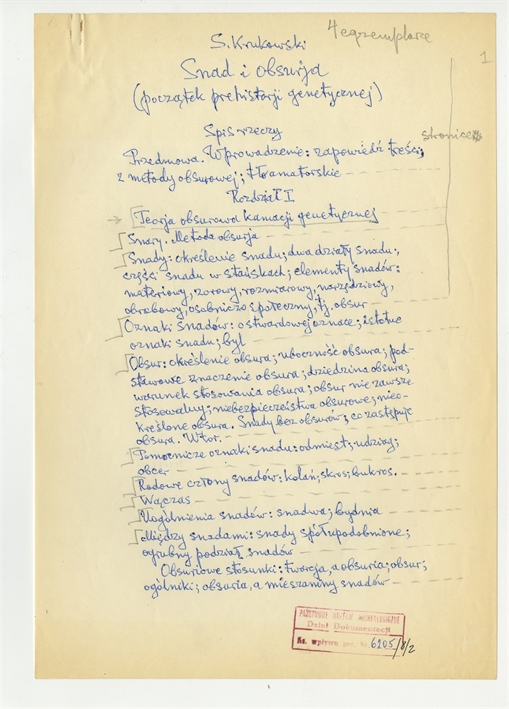 4 egzemplarze
1
S. Krukowski
Snad i obsurja
(początek prehistorji genetycznej)
stronice
Spis rzeczy
Przedmowa. Wprowadzenie: zapowiedź treści;
z metody obsurowej; tło amatorskie
Rozdział I
Teorja obsurowa kamacji genetycznej
Snary. Metoda obsurja
Snady: określenie snadu; dwa działy snadu;
części snadu w stańskach; elementy snadów:
materiowy, zorowy, rozmiarowy, narzędziowy,
obrabowy, osobniczo społeczny, tj. obsur
Oznaki snadów: o stwardowej oznace; istotne
oznaki snadu; był
Obsur: określenie obsura; uboczność obsura; pod-
stawowe znaczenie obsura; dziedzina obsura;
warunek stosowania obsura; obsur nie zawsze
stosowalny; niebezpieczeństwa obsurowe; nieo-
kreślone obsura. Snady bez obsurów; co zastępuje
obsura. Wtor.
Pomocnicze oznaki snadu: odmięst; udziay;
obcer
Rodowe człony snadów: kołań; skros; bukros.
Wączas
Uogólnienia snadów: snadwa; bydnia
Między snadami: snady spółupodobnione;
ogrubny podział snadów
Obsurowe stosunki: twarcja, a obsuria; obsur;
ogólniki; obsuria, a mieszaniny snadów
PAŃSTWOWE MUZEUM ARCHEOLOGICZNE
Dział Dokumentacji
Ks. wpływu poz. Nr 6205/8/2